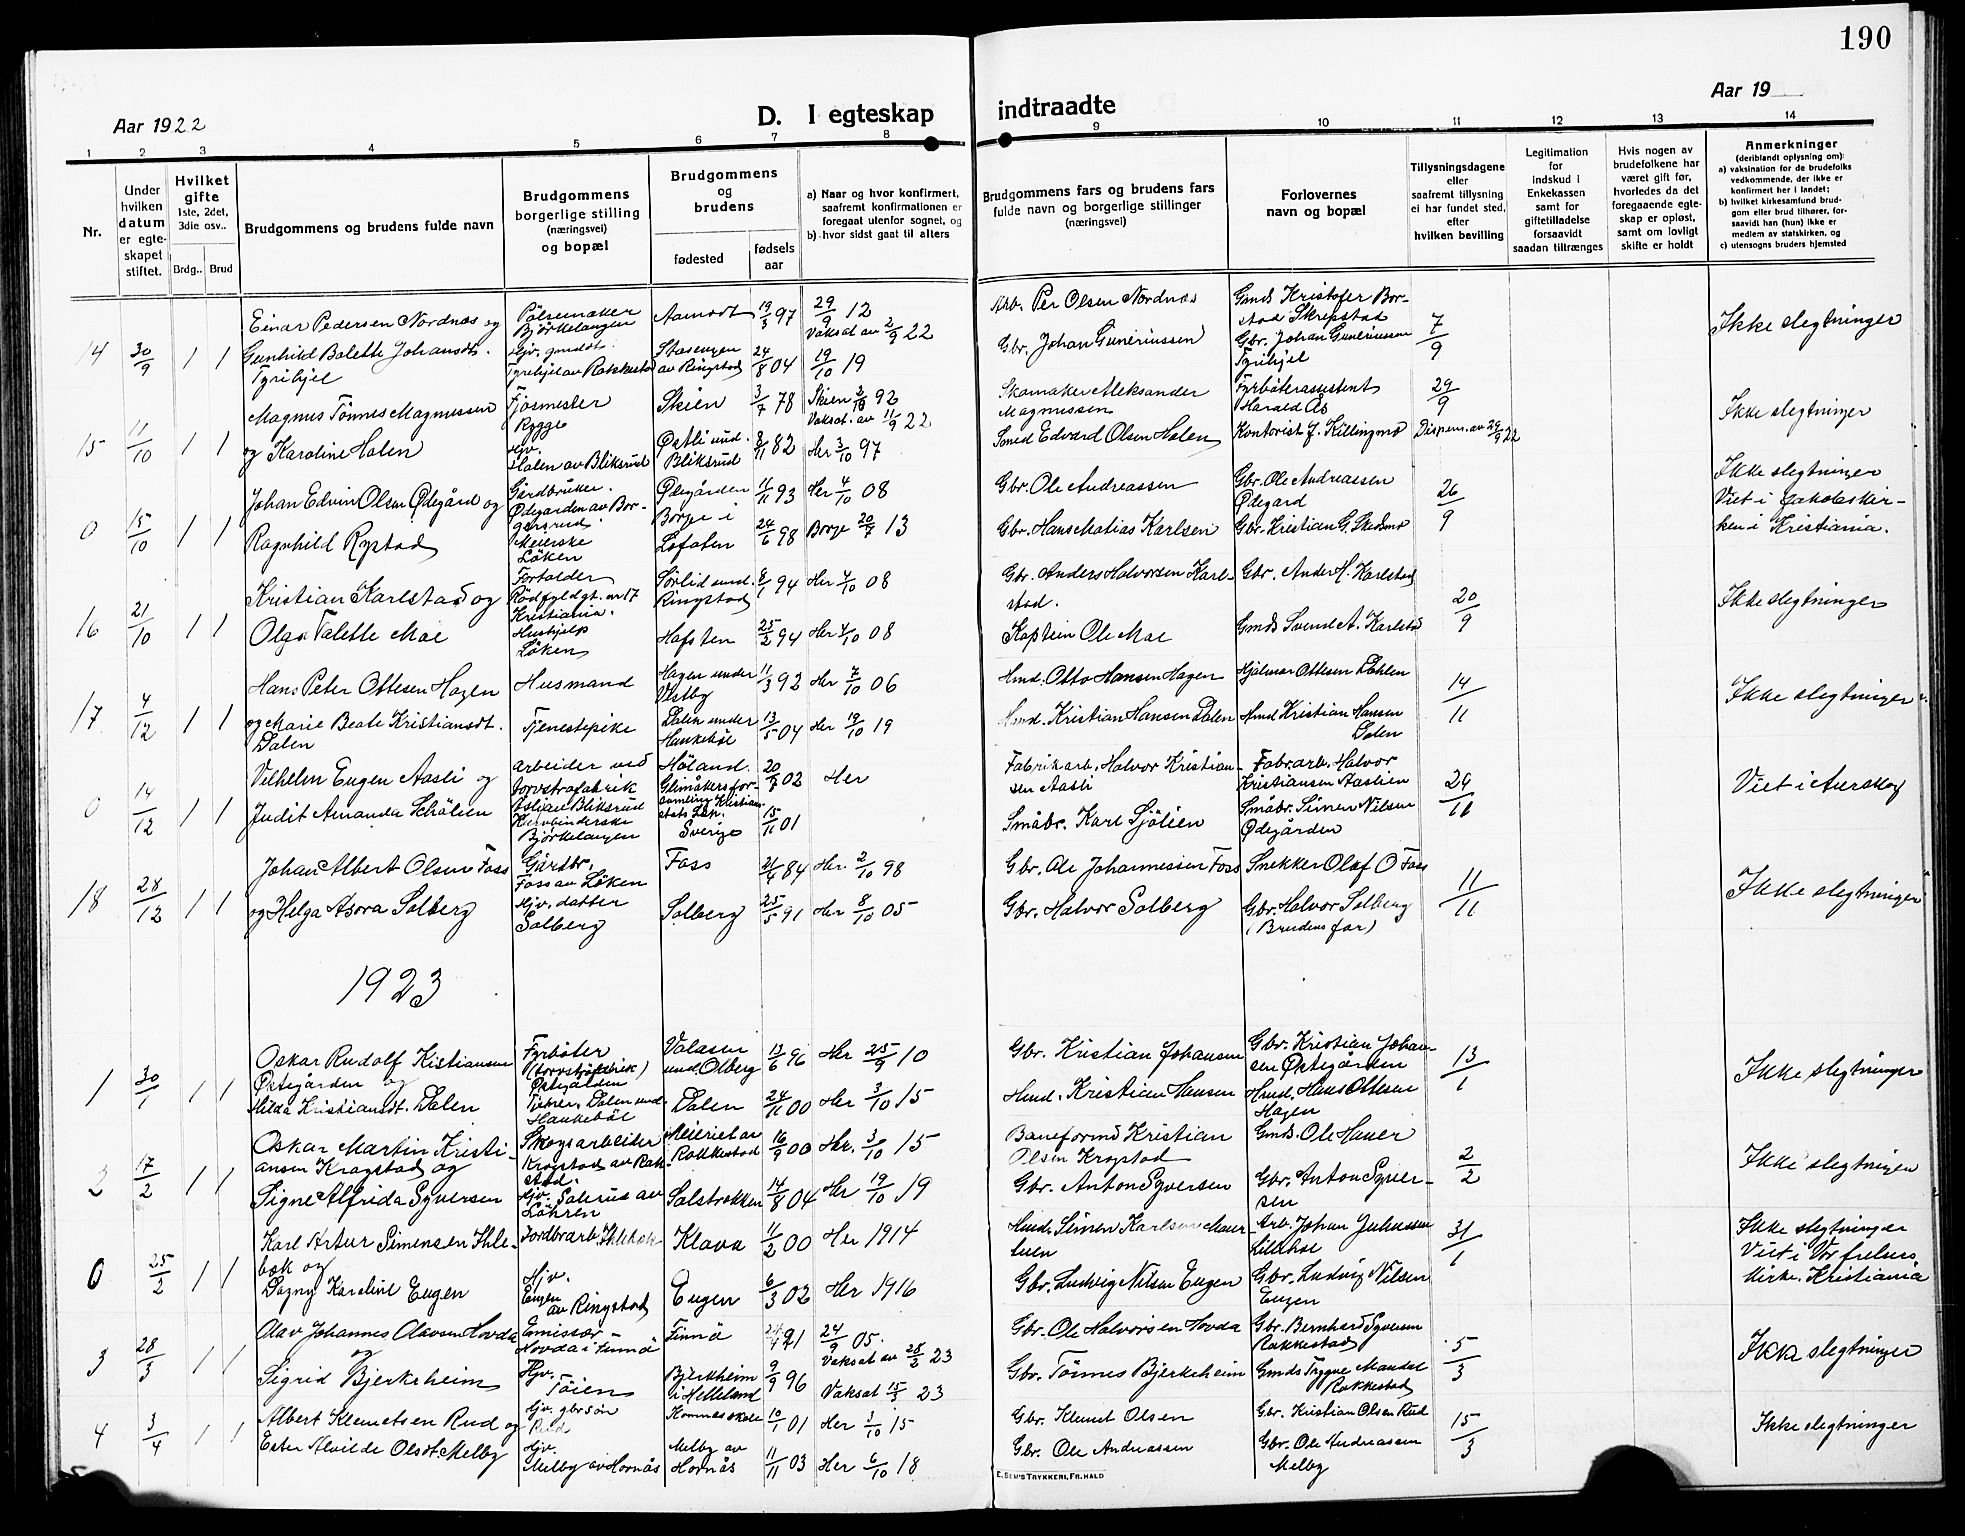 190
Aar 1922
D. I egteskap
indtraadte
Aar 19
1 2 3 4 5 6 7 8 9 10 11 12 13 14
Nr.
Under hvilken datum er egteskapet stiftet.
Hvilket gifte
1ste, 2det, 3die osv..
Brdg.. Brud
Brudgommens og brudens fulde navn
Brudgommens borgerlige stilling (næringsvei) og bopæl
Brudgommens og brudens
fødested
fødsels aar
a) Naar og hvor konfirmert, saafremt konfirmationen er foregaat utenfor sognet, og
b) hvor sidst gaat til alters
Brudgommens fars og brudens fars fulde navn og borgerlige stillinger (næringsvei)
Forlovernes navn og bopæl
Tillysningsdagene eller saafremt tillysning ei har fundet sted, efter hvilken bevilling
Legitimation for indskud i Enkekassen samt for giftetilladelse forsaavidt saadan tiltrænges
Hvis nogen av brudefolkene har været gift før, hvorledes da det foregaaende egteskap er opløst, samt om lovligt skifte er holdt
Anmerkninger
(deriblandt oplysning om):
a) vaksination for de brudefolks vedkommende, der ikke er konfirmert her i landet;
b) hvilket kirkesamfund brudgom eller brud tilhører, forsaavidt han (hun) ikke er medlem av statskirken, og
c) utensogns bruders hjemsted
14 30/9 1 1
Einar Pedersen Nordnæs og
Gunhild Bolette Johansdt.
Tyrihjel
Pølsemaker
Bjørkelangen
Hjv. gmdsdt.
Tyrihjel av Rakkestad
Aamodt 19/3 97 29/9 12
Vaksat av 2/9 22
Stasengen
av Ringstad 24/8 04 19/10 19
Arb. Per Olsen Nordnæs
Gbr. Johan Gunerinssen
Gmds Kristofer Bor-
stad Skrepstad
Gbr. Johan Gunerinssen
Tyrihjel
7/9
Ikke slegtninger
15 11/10 1 1
Magnus Tønnes Magnussen
og Karoline Holen
Fjøsmester
Rygge
Hjv.
Holen av Bliksrud
Skien 3/7 78 Skien 2/10 92
Vaksat. av 11/9 22
Østli und.
Bliksrud 8/11 82 Her 3/10 97
Skomaker Aleksander
Magnussen
Smed Edvard Olsen Holen
Fyrbøterassistent
Harald Ås
Kontorist J. Killingmo
29/9
Dispens. av 29/9 22
Ikke slegtninger
0 15/10 1 1
Johan Edvin Olsen Ødegård og
Ragnhild Rystad
Gårdbruker.
Ødegården av Bor-
gersrud.
Meierske
Løken
Ødegården 11/11 93 Her 4/10 08
Borge i
Lofoten 24/6 98 Borge 20/7 13
Gbr. Ole Andreassen
Gbr. Hans Matias Karlsen
Gbr. Ole Andreassen
Ødegard
Gbr. Kristian G. Skedsmo
26/9
Ikke slegtninger
Viet i Jakobskir-
ken i Kristiania.
16 21/10 1 1
Kristian Karlstad og
Olga Valette Moe
Forvalder
Rødfyldgt. nr 17
Kristiania.
Hushjelp
Løken
Sørlid und.
Ringstad 8/1 94 Her 4/10 08
Hofsten 25/2 94 Her 4/10 08
Gbr. Anders Halvorsen Karl-
stad.
Kaptein Ole Moe
Gbr. Anders H. Karlstad
Gmds Svend A. Karlstad
20/9
Ikke slegtninger
17 4/12 1 1
Hans Peter Ottesen Hagen
og Marie Beate Kristiansdt.
Dalen
Husmand
Tjenestepike
Hagen under
Vestby 11/3 92 Her 7/10 06
Dalen under
Haukebøl 13/5 04 Her 19/10 19
Hmd. Otto Hansen Hagen
Hmd. Kristian Hansen Dalen
Hjalmar Ottesen Dahlen
Hmd Kristian Hansen
Dalen
14/11
Ikke slegtninger
0 14/12 1 1
Vilhelm Eugen Aasli og
Judit Amanda Schølien
arbeider ved
torvstrøfabrik
Aslien Bliksrud
Hervbinderske
Bjørkelangen
Høland. 20/7 02 Her
Glimåkersfor-
samling Kristian-
stads Län.
Sverige 15/11 01
Fabrikarb. Halvor Kristian-
sen Aasli
Småbr. Karl Sjølien
Fabrarb. Halvor
Kristiansen Aaslien
Småbr. Simen Nilsen
Ødegården
29/11
Viet i Aurskog
18 28/12 1 1
Johan Albert Olsen Foss
og Helga Asora Solberg
Gårdbr.
Foss av Løken
Hjv. datter
Solberg
Foss 21/4 84 Her 2/10 98
Solberg 25/5 91 Her 8/10 05
Gbr. Ole Johannessen Foss
Gbr. Halvor Solberg
Snekker Olaf O Foss
Gbr. Halvor Solberg
(Brudens far)
11/11
Ikke slegtninger
1923
1 30/1 1 1
Oskar Rudolf Kistiansen
Østegården og
Hilda Kristiansdt. Dalen
Fyrbøter
(torvstrøfabrik)
Østegården
Tjener. Dalen und
Haukebøl
Valasen
und. Olberg 13/6 96 Her 25/9 10
Dalen 24/11 00 Her 3/10 15
Gbr. Kristian Johansen
Hmd. Kristian Hansen
Gbr. Kristian Johan-
sen Østegården
Hmd. Hans Ottesen
Hagen
13/1
Ikke slegtninger
2 17/2 1 1
Oskar Martin Kristi-
ansen Krogstad og
Signe Alfrida Syversen
Skogsarbeider
Krogstad av Rak-
stad.
Hjv. Saterus av
Løkren
Meieriet av
Rakkestad 16/9 00 Her. 3/10 15
Solstrokken 14/8 04 Her 19/10 19
Baneformd Kristian
Olsen Krogstad
Gbr. Anton Syversen
Gmds. Ole Hauer
Gbr. Anton Syver-
sen
2/2
Ikke slegtninger
0 25/2 1 1
Karl Artur Simensen Ihle-
bæk og
Dagny Karoline Eugen
Jordbrarb. Ihlebæk
Hjv.
Eugen
av Ringstad
Klova 11/2 00 Her 1914
Eugen 6/3 02 Her 1916
Hmd. Simen Karlsen Moer-
tuen
Gbr. Ludvig Nilsen Eugen
Arb. Johan Juliussen
Lillehol
Gbr. Ludvig Nilsen
Eugen
31/1
Ikke slegtninger
Viet i Vor frelsers
kirke. Kristiania
3 28/3 1 1
Olav Johannes Olavsen Hovda
og
Sigrid Bjerkrheim
Emissær-
Hovda i Finnø
Hjv.
Töien
Finnø 24/4 91 24/9 05.
Vaksat av 28/2 23
Bjerkheim
i Helleland 9/9 96 Vaksat 15/3 23
Gbr. Ole Halvorsen Hovda
Gbr. Tönnes Bjerkeheim
Gbr. Bernhard Syversen
Rakkestad
Gmds Trygve Mandal
Rakkestad
5/3
Ikke slegtninger
4 3/4 1 1
Albert Klemetsen Rud og
Ester Alvilde Olsdt. Melby
Hjv. gbrsøn
Rud
Hjv.
Melby av Hornås
Komnes skole 10/1 01 Her 3/10 15
Melby av
Hornås 11/11 03 Her 6/10 18
Gbr. Klemet Olsen
Gbr. Ole Andreassen
Gbr. Kristian Olsen Rud
Gbr. Ole Andreassen
Melby
15/3
Ikke slegtninger
E. SEM'S TRYKKERI, FR.HALD